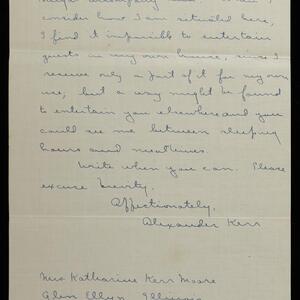 consider how I am situated here,
I find it impossible to entertain
guests in my own house, since I
reserve only a part of it for my own
use, but a way might be found
to entertain you elsewhere and you
could see me between sleeping
hours and mealtimes.
Write when you can. Please
excuse brevity.
Affectionately,
Alexander Kerr
Mrs Katharine Kerr Moore
Glen Ellyn, Illinois